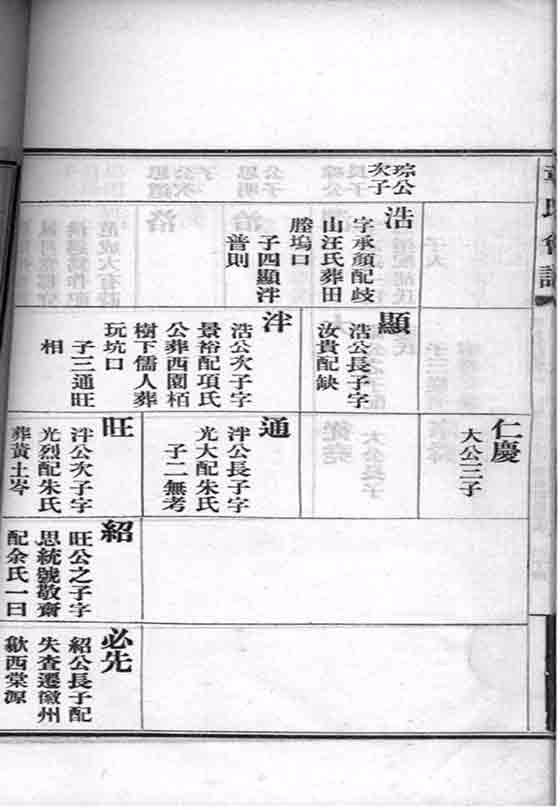 琮公
次子
浩
字承顏配歧
山汪氏葬田
塍塢口
子四顯泮
普則
顯
浩公長子字
汝貴配缺
泮
浩公次子字
景裕配項氏
公葬西園栢
樹下儒人葬
玩坑口
子三通旺
相
仁慶
大公三子
通
泮公長子字
光大配朱氏
子二無考
旺
泮公次子字
光烈配朱氏
葬黃土岑
紹
旺公之子字
思統號敬齋
配余氏一曰
必先
紹公長子配
失查遷徽州
歙西棠源